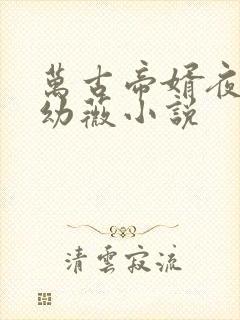 萬古帝婿夜
幼薇小説
清雲寂流